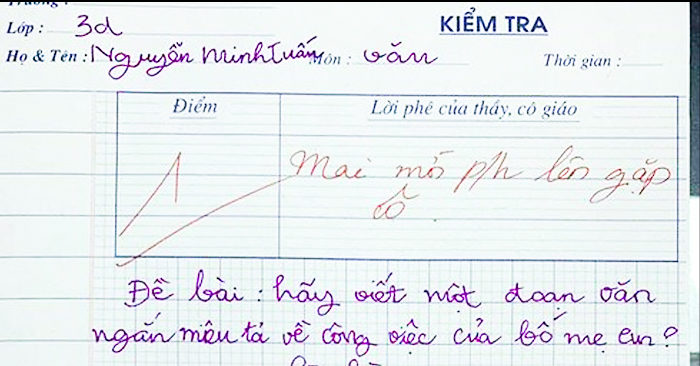 Lớp : 3d KIỂM TRA
Họ & Tên : Nguyễn Minh Tuấn Môn : văn Thời gian :
Điểm Lời phê của thầy, cô giáo
1 Mai mời p/h lên gặp
cô
Đề bài : hãy viết một đoạn văn
ngắn miêu tả về công việc của bố mẹ em?